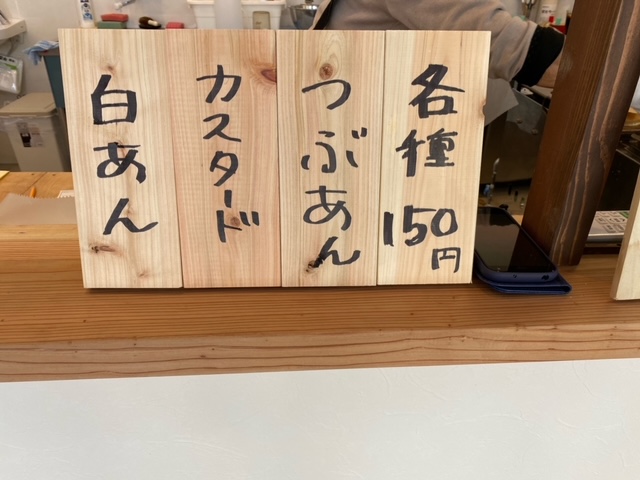 各種
150円
つぶあん
カスタード
白あん